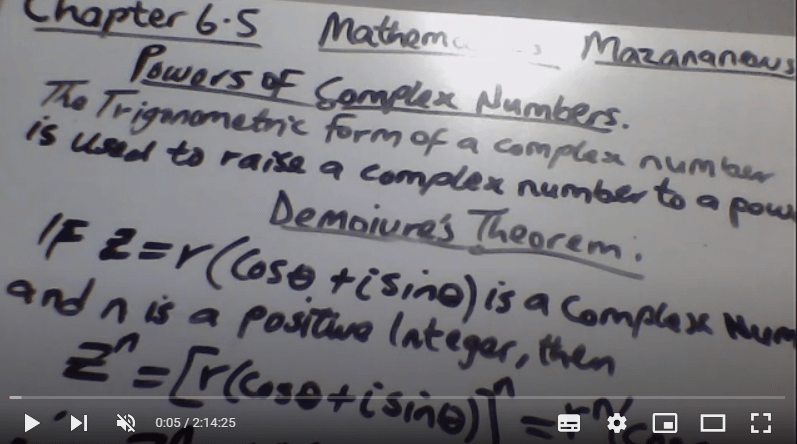 Chapter 6.5 Mazananows
Powers of Complex Numbers.
The Triganometric form of a complex number
is used to raise a complex number to a pow
Demoiure's Theorem.
IF z=r(cosθ+isinθ) is a Complex Num
and n is a positive Integer, then
Zⁿ=[r(cosθ+isinθ)]ⁿ=rⁿ(cos
0:05 / 2:14:25